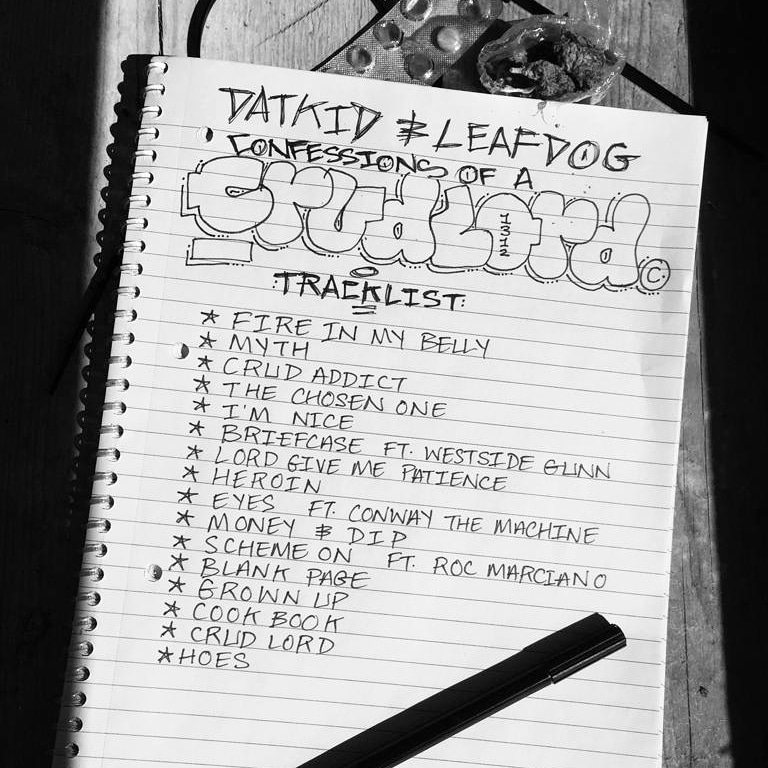 DATKID & LEAFDOG
CONFESSIONS OF A
CRUDLORD ©
1312
TRACKLIST:
* FIRE IN MY BELLY
* MYTH
* CRUD ADDICT
* THE CHOSEN ONE
* I'M NICE
* BRIEFCASE FT. WESTSIDE GUNN
* LORD GIVE ME PATIENCE
* HEROIN
* EYES FT. CONWAY THE MACHINE
* MONEY & DIP
* SCHEME ON FT. ROC MARCIANO
* BLANK PAGE
* GROWN UP
* COOK BOOK
* CRUD LORD
* HOES